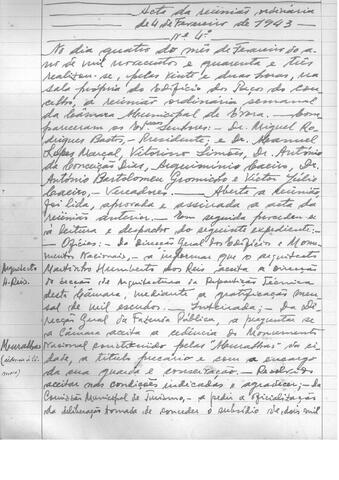 Acta da reunião ordinária
de 4 de Fevereiro de 1943
Nº 4º
No dia quatro do mês de Fevereiro do a-
no de mil novecentos e quarenta e três
realizou-se, pelas vinte e duas horas, na
sala própria do Edifício dos Paços do con-
celho, a reunião ordinária semanal
da Câmara Municipal de Évora. – Com-
pareceram os Exmos Senhores: – Dr. Miguel Ro-
drigues Bastos, – Presidente; e Dr. Manuel
Lopes Marçal, Vitorino Simões, Dr. António
da Conceição Dias, Caeiro, Dr.
António Bartolomeu Gromicho e Victor Júlio
Caeiro, – Vereadores. – Aberta a reunião
foi lida, aprovada e assinada a acta da
reunião anterior. – Em seguida procedeu-se
à leitura e despacho do seguinte expediente: –
– Ofícios: – da Direcção Geral dos Edifícios e Monu-
mentos Nacionais, – a informar que o arquitecto
Humberto dos Reis aceita a direcção
da secção de Arquitectura da Repartição Técnica
desta Câmara, mediante a gratificação men-
sal de mil escudos. – Inteirada; – da Di-
recção Geral da Fazenda Pública, a preguntar se
a Câmara aceita a cedência do Monumento
Nacional constituido pelas "Muralhas" da ci-
dade, a título precário e com o encargo
da sua guarda e conservação. – Resolvido
aceitar nas condições indicadas e agradecer; – da
Comissão Municipal de Turismo, – a pedir a oficialização
da deliberação tomada de conceder o subsídio de dois mil
Arquitecto
H. Reis.
Muralhas
(cedência à Câ-
mara)